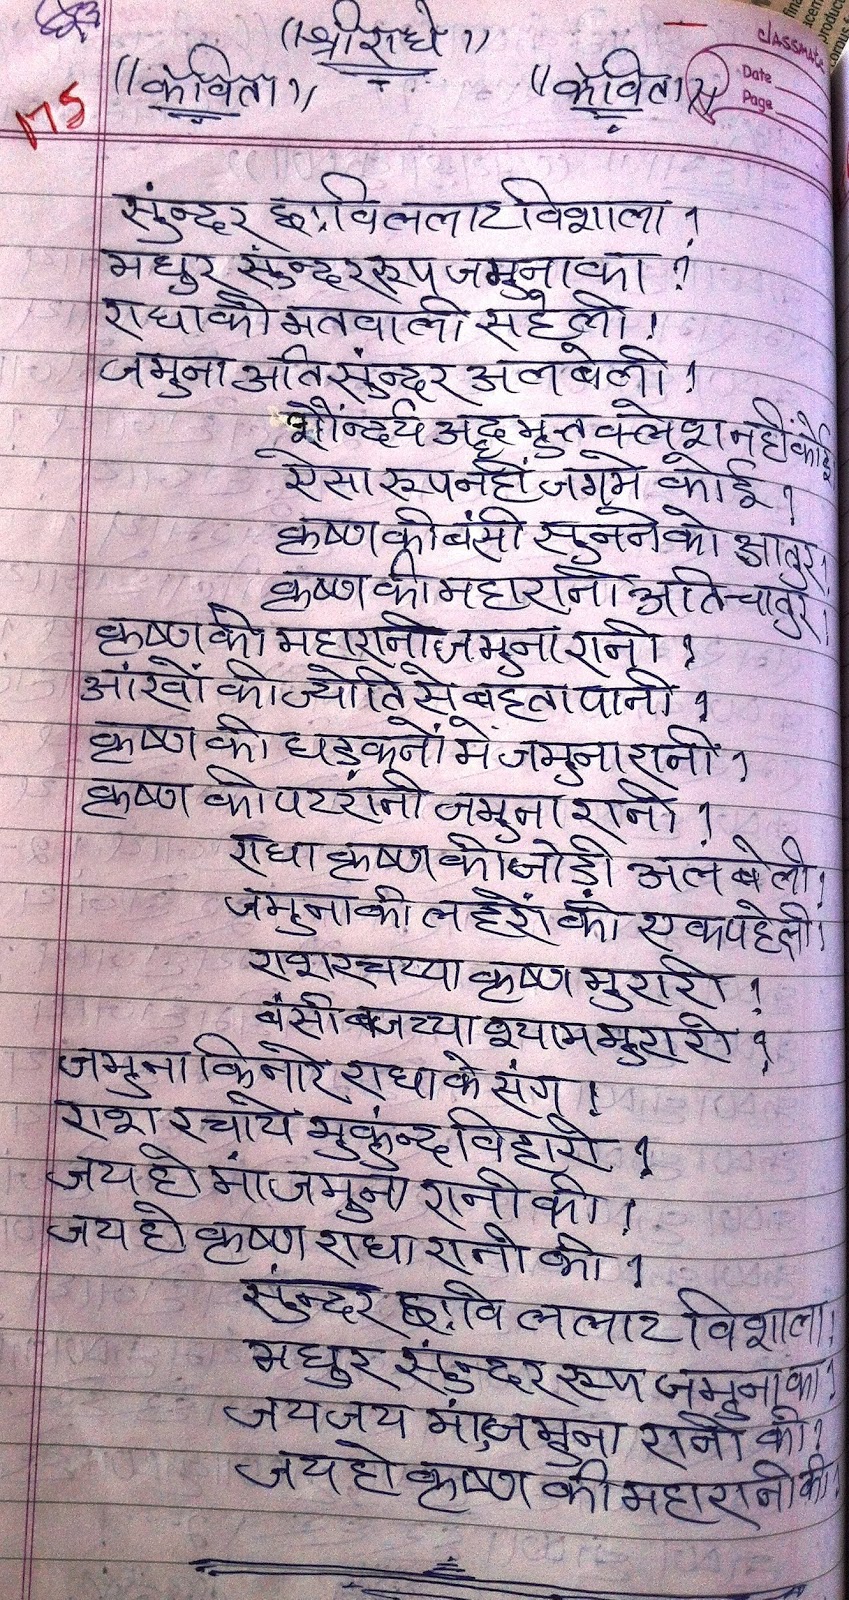 ॥श्रीराधे॥
॥कविता॥ ॥कविता॥
classmate
Date
Page
सुंन्दर छ्विललाट विशाला।
मधुर सुंन्दर रूप जमुना का।
राधा की मतवाली सहेली।
जमुना अति सुंन्दर अलबेली।
शौंन्दर्य अद्भुत क्लेश नहीं कोई
ऐसा रूप नहीं जग मे कोई।
कृष्ण की बंसी सुनने को आतुर।
कृष्ण की महारानी अति चातुर।
कृष्ण की महारानी जमुना रानी।
आंखों की ज्योति से बहता पानी।
कृष्ण की धड़कनों में जमुना रानी।
कृष्ण की पटरांनी जमुना रानी।
राधा कृष्ण की जोड़ी अलबेली।
जमुना की लहरों की एक पहेली।
राश रचय्या कृष्ण मुरारी।
बंसी बजय्या श्याम मुरारी।
जमुना किनारे राधा के संग।
राश रचाये मुकुंन्द विहारी।
जय हो मां जमुना रानी की।
जय हो कृष्ण राधा रानी की।
सुंन्दर छ्वि ललाट विशाला।
मधुर सुंन्दर रूप जमुना का।
जय जय मां जमुना रानी की।
जय हो कृष्ण की महारानी की।